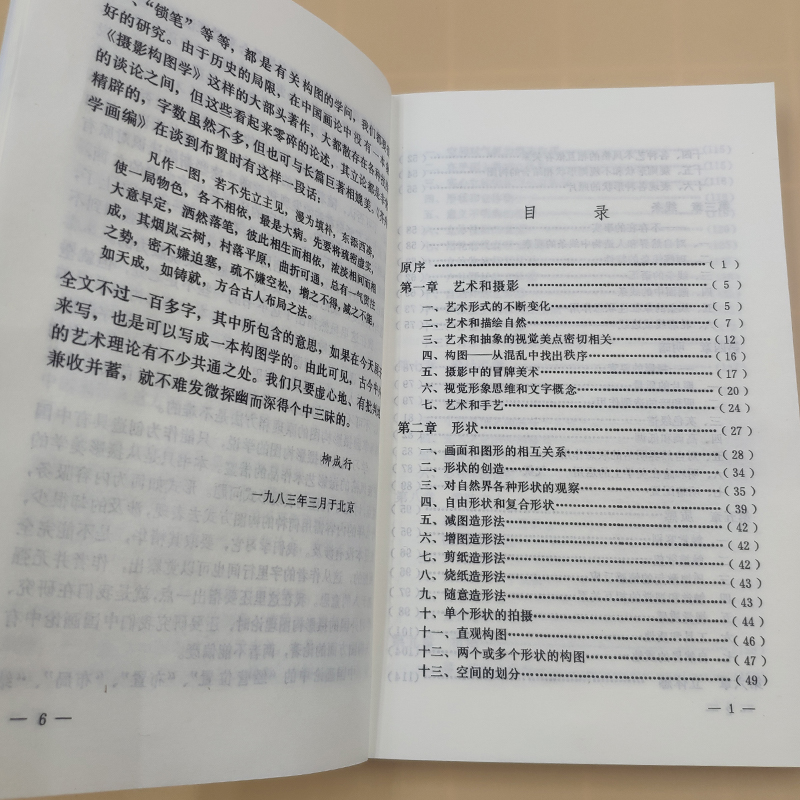 、“锁笔”等等，都是有关构图的学问，我们都
好的研究。由于历史的局限，在中国画论中没有一本
《摄影构图学》这样的大部头著作，大都散存在各种
的谈论之间，但这些看起来零碎的论述，其立论都
精辟的，字数虽然不多，但也可与长篇巨著相媲美。《
学画编》在谈到布置时有这样一段话：
凡作一图，若不先立主见，漫为填补，东添西凑，
使一局物色，各不相依，最是大病。先要将疏密虚实，
大意早定，洒然落笔，彼此相生而相依，浓淡相间而相
成，其烟岚云树，村落平原，曲折可通，总有一气贯注
之势，密不嫌迫塞，疏不嫌空松，增之不得，减之不能，
如天成，如铸就，方合古人布局之法。
全文不过一百多字，其中所包含的意思，如果在今天
来写，也是可以写成一本构图学的。由此可见，古今中
的艺术理论有不少共通之处。我们只要虚心地、有批
兼收并蓄，就不难发微探幽而深得个中三昧的。
柳成行
一九八三年三月于北京
— 6 —
目 录
原序……（1）
第一章 艺术和摄影……（5）
一、艺术形式的不断变化……（5）
二、艺术和描绘自然……（7）
三、艺术和抽象的视觉美点密切相关……（12）
四、构图——从混乱中找出秩序……（16）
五、摄影中的冒牌美术……（17）
六、视觉形象思维和文字概念……（20）
七、艺术和手艺……（24）
第二章 形状……（27）
一、画面和图形的相互关系……（28）
二、形状的创造……（34）
三、对自然界各种形状的观察……（35）
四、自由形状和复合形状……（39）
五、减图造形法……（42）
六、增图造形法……（42）
七、剪纸造形法……（42）
八、烧纸造形法……（43）
九、随意造形法……（43）
十、单个形状的拍摄……（44）
十一、直观构图……（46）
十二、两个或多个形状的构图……（47）
十三、空间的划分……（49）
— 1 —